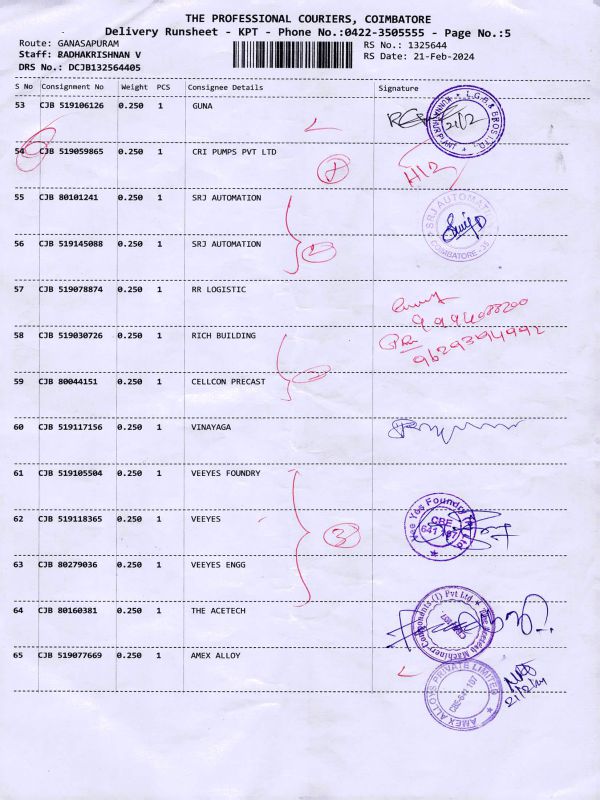 THE PROFESSIONAL COURIERS, COIMBATORE
Delivery Runsheet - KPT - Phone No.:0422-3505555 - Page No.:5
Route: GANASAPURAM RS No.: 1325644
Staff: RADHAKRISHNAN V RS Date: 21-Feb-2024
DRS No.: DCJB132564405
S No Consignment No Weight PCS Consignee Details Signature
53 CJB 519106126 0.250 1 GUNA
L.G.B. & BROS LTD
21/2
54 CJB 519059865 0.250 1 CRI PUMPS PVT LTD
55 CJB 80101241 0.250 1 SRJ AUTOMATION
SRJ AUTOMATION
COIMBATORE - 35
56 CJB 519145088 0.250 1 SRJ AUTOMATION
57 CJB 519078874 0.250 1 RR LOGISTIC
58 CJB 519030726 0.250 1 RICH BUILDING
9629394992
59 CJB 80044151 0.250 1 CELLCON PRECAST
60 CJB 519117156 0.250 1 VINAYAGA
61 CJB 519105504 0.250 1 VEEYES FOUNDRY
62 CJB 519118365 0.250 1 VEEYES
3
Vee Yes Foundry
CBE
641 107
63 CJB 80279036 1 0.250 VEEYES ENGG
64 CJB 80160381 0.250 1 THE ACETECH
Machinery Components (I) Pvt Ltd
65 CJB 519077669 0.250 1 AMEX ALLOY
AMEX ALLOYS PRIVATE LIMITED
CBE-641 107
21/2/24